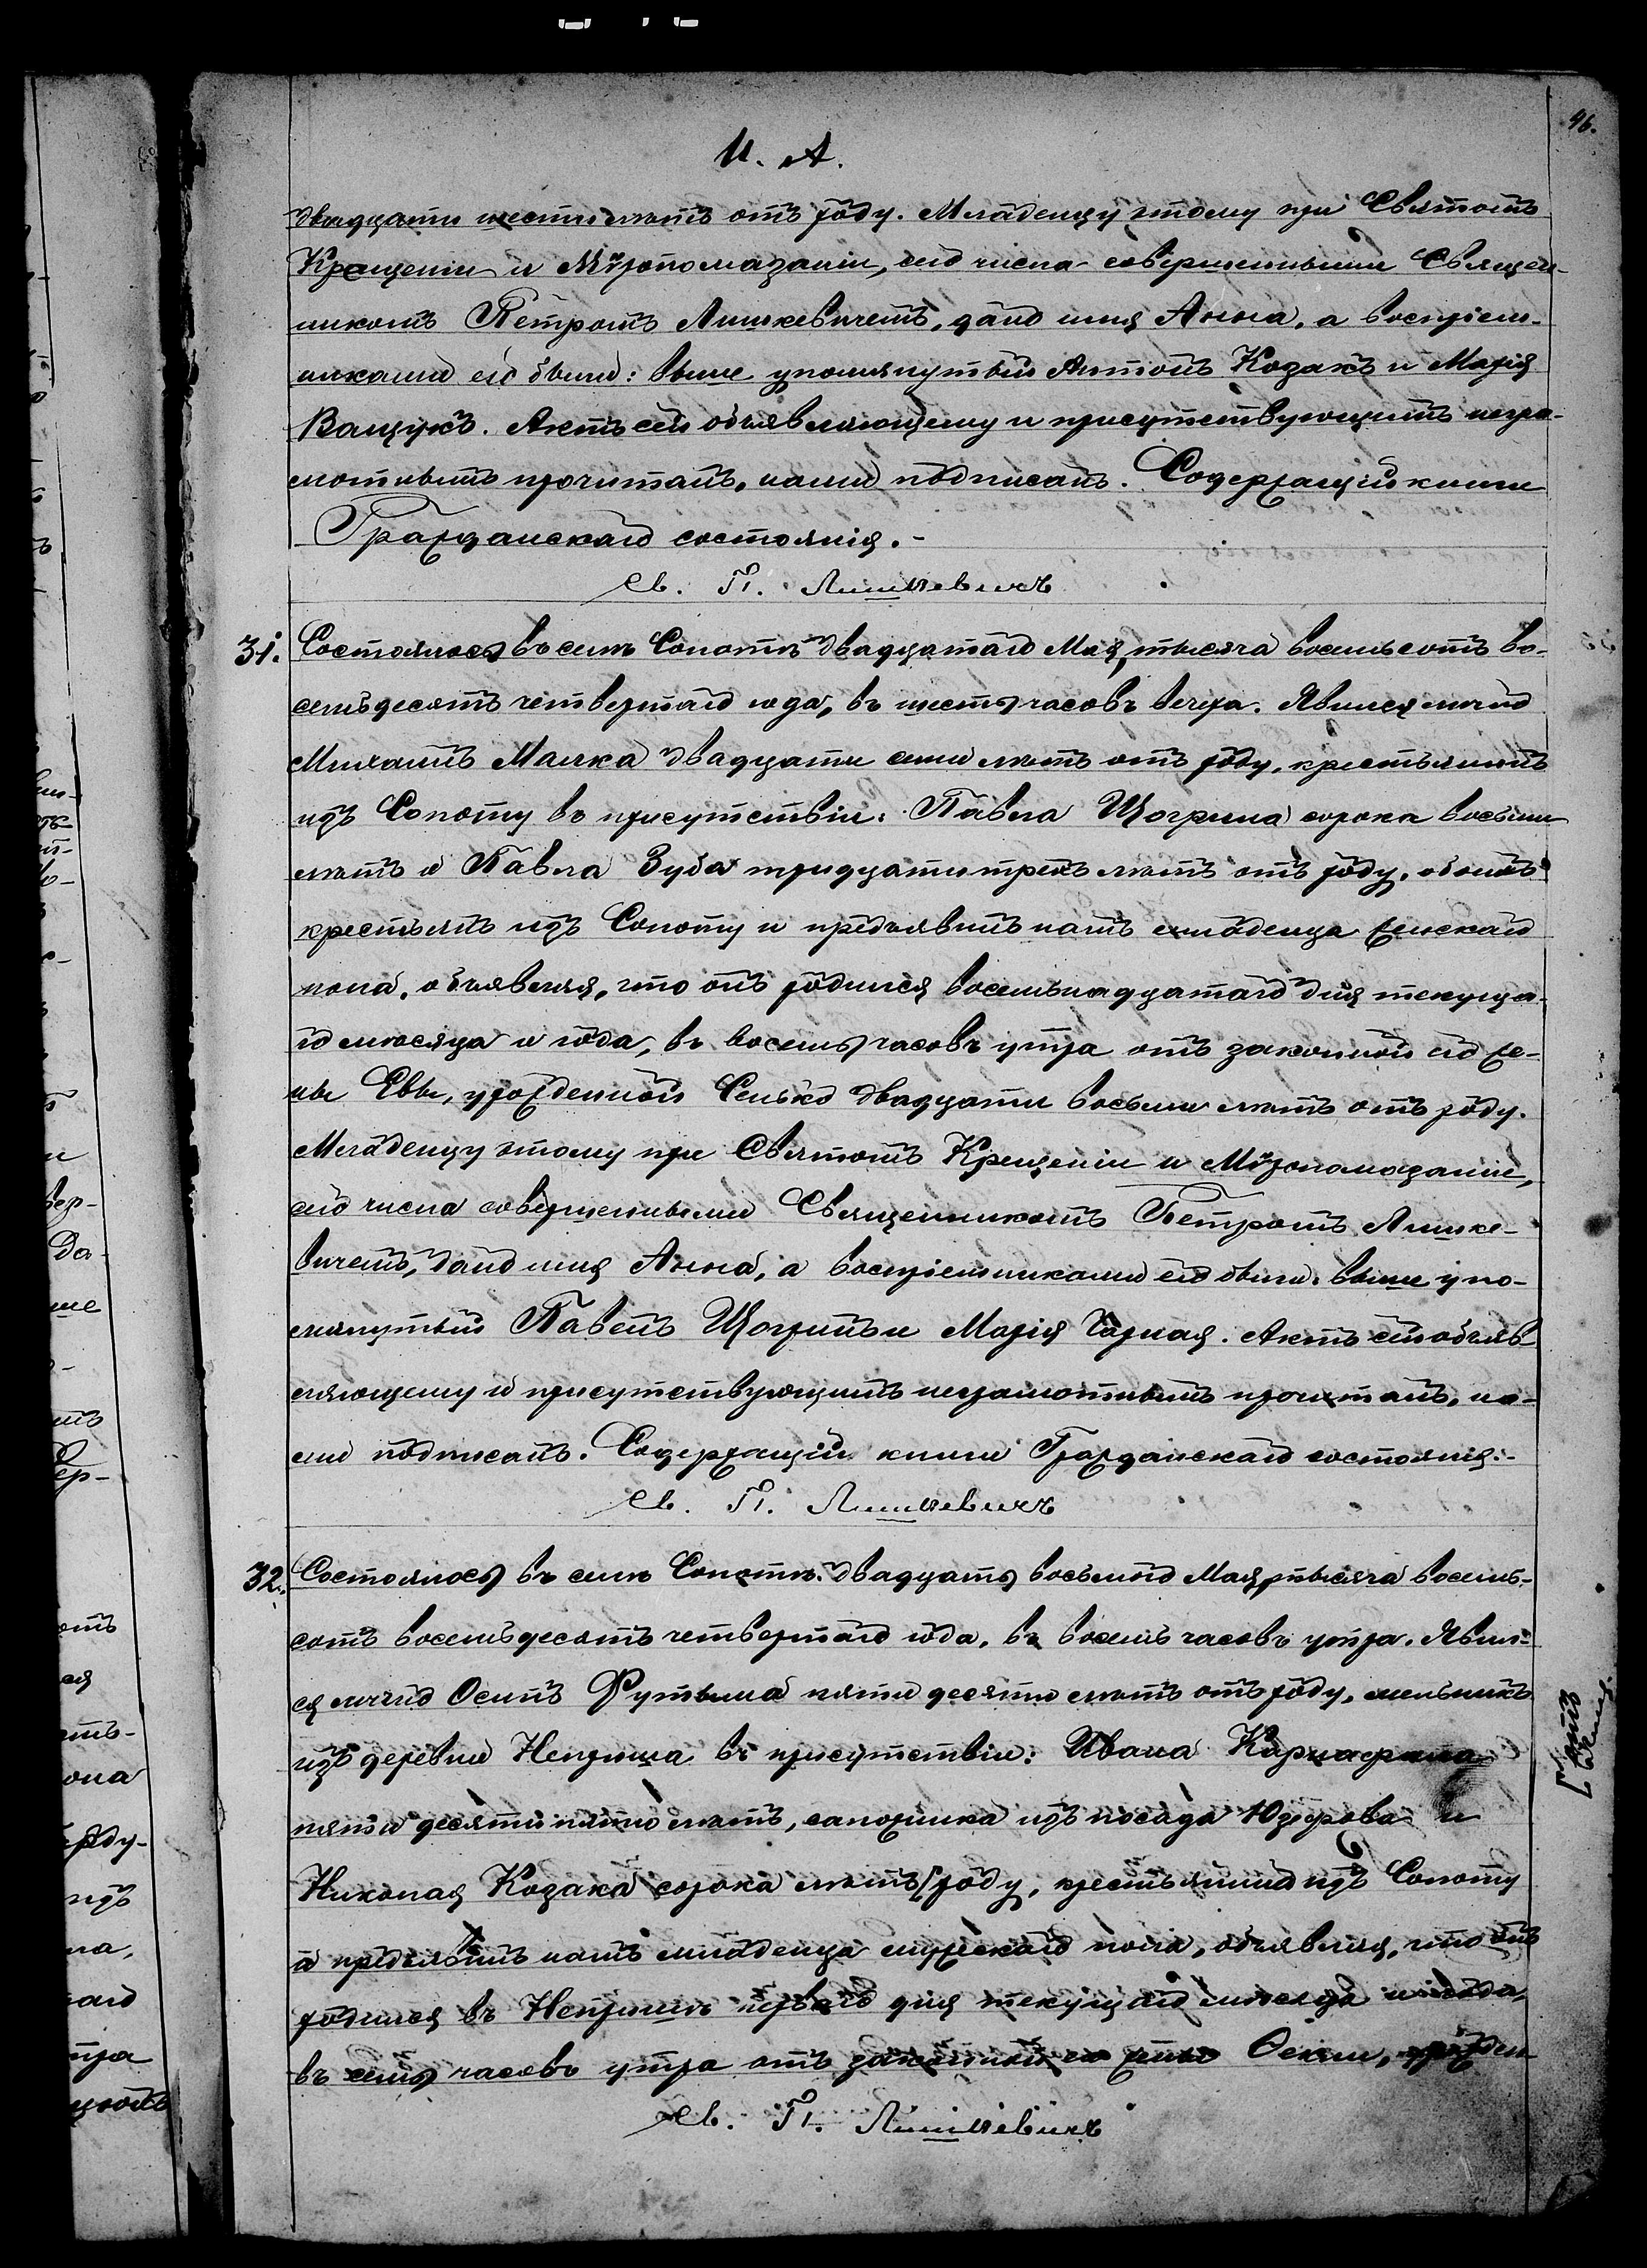 96.
И. А.
двадцати шести лѣтъ отъ роду. Младенцу этому при Святомъ
Крещеніи и Мѵропомазаніи, сего числа совершенными Священ-
никомъ Петромъ Лишкевичемъ, дано имя Анна, а воспріем-
никами его были: выше упомянутый Антонъ Козакъ и Марія
Ващукъ. Актъ сей объявляющему и присутствующимъ негра-
мотнымъ прочитанъ, нами подписанъ. Содержащій книги
Гражданскаго состоянія.-
Св. П. Лишкевичъ
31. Состоялось въ селѣ Сопотѣ двадцатаго Мая, тысяча восемьсотъ во-
семьдесятъ четвертаго года, въ шесть часовъ вечера. Явился лично
Михаилъ Малка двадцати семи лѣтъ отъ роду, крестьянинъ
изъ Сопоту въ присутствіи: Павла Щогрина сорока восьми
лѣтъ и Павла Зуба тридцати трехъ лѣтъ отъ роду, обоихъ
крестьянъ изъ Сопоту и предъявилъ намъ младенца женскаго
пола, объявляя, что онъ родился восемьнадцатаго дня текуща-
го мѣсяца и года, въ восемь часовъ утра отъ законной его же-
ны Евы, урожденной Сенько двадцати восьми лѣтъ отъ роду.
Младенцу этому при Святомъ Крещеніи и Мѵропомазаніи,
сего числа совершенными Священникомъ Петромъ Лишке-
вичемъ, дано имя Анна, а воспріемниками его были: выше упо-
мянутый Павелъ Щогринъ и Марія Чарная. Актъ сей объяв-
ляющему и присутствующимъ неграмотнымъ прочитанъ, на-
ми подписанъ. Содержащій книги Гражданскаго состоянія.-
Св. П. Лишкевичъ
32. Состоялось въ селѣ Сопотѣ двадцать восьмаго Мая, тысяча восемь-
сотъ восемьдесятъ четвертаго года, въ восемь часовъ утра. Явил-
ся лично Осипъ Футыма пяти десяти лѣтъ отъ роду, мельникъ
изъ деревни Неприша въ присутствіи: Ивана
пяти десяти пяти лѣтъ, сапожника изъ посада Юзефова и
Николая Козака сорока лѣтъ роду, крестьянина изъ Сопоту
и предъявилъ намъ младенца мужескаго пола, объявляя, что онъ
родился въ Непришѣ перваго дня текущаго мѣсяца и года,
въ семь часовъ утра отъ законной его жены Оксии, урожден
Св. П. Лишкевичъ